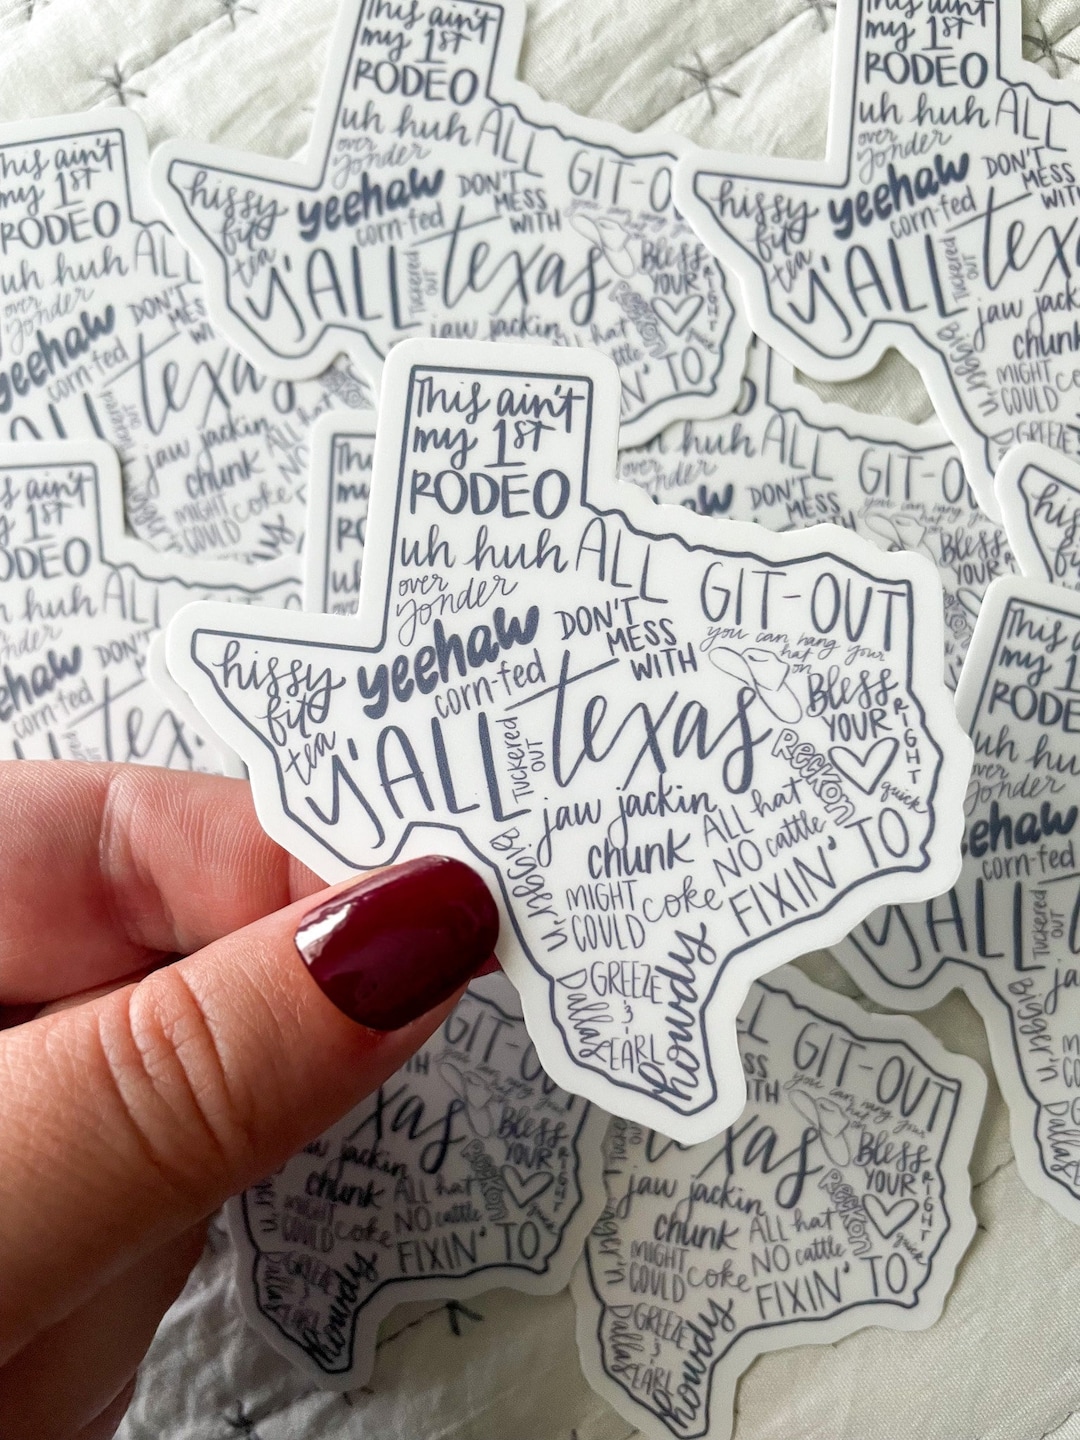 This ain't
my 1st
RODEO
uh huh ALL
over
yonder
GIT-OUT
you can hang your
hat
on
hissy
fit
tea
yeehaw
corn-fed
DON'T
MESS
WITH
texas
Bless
YOUR
RIGHT
quick
Y'ALL
TUCKERED
OUT
Reckon
jaw jackin
chunk
ALL hat
NO cattle
Bigger'n
MIGHT
COULD
coke
FIXIN' TO
Dallas
GREEZE
EARL
howdy